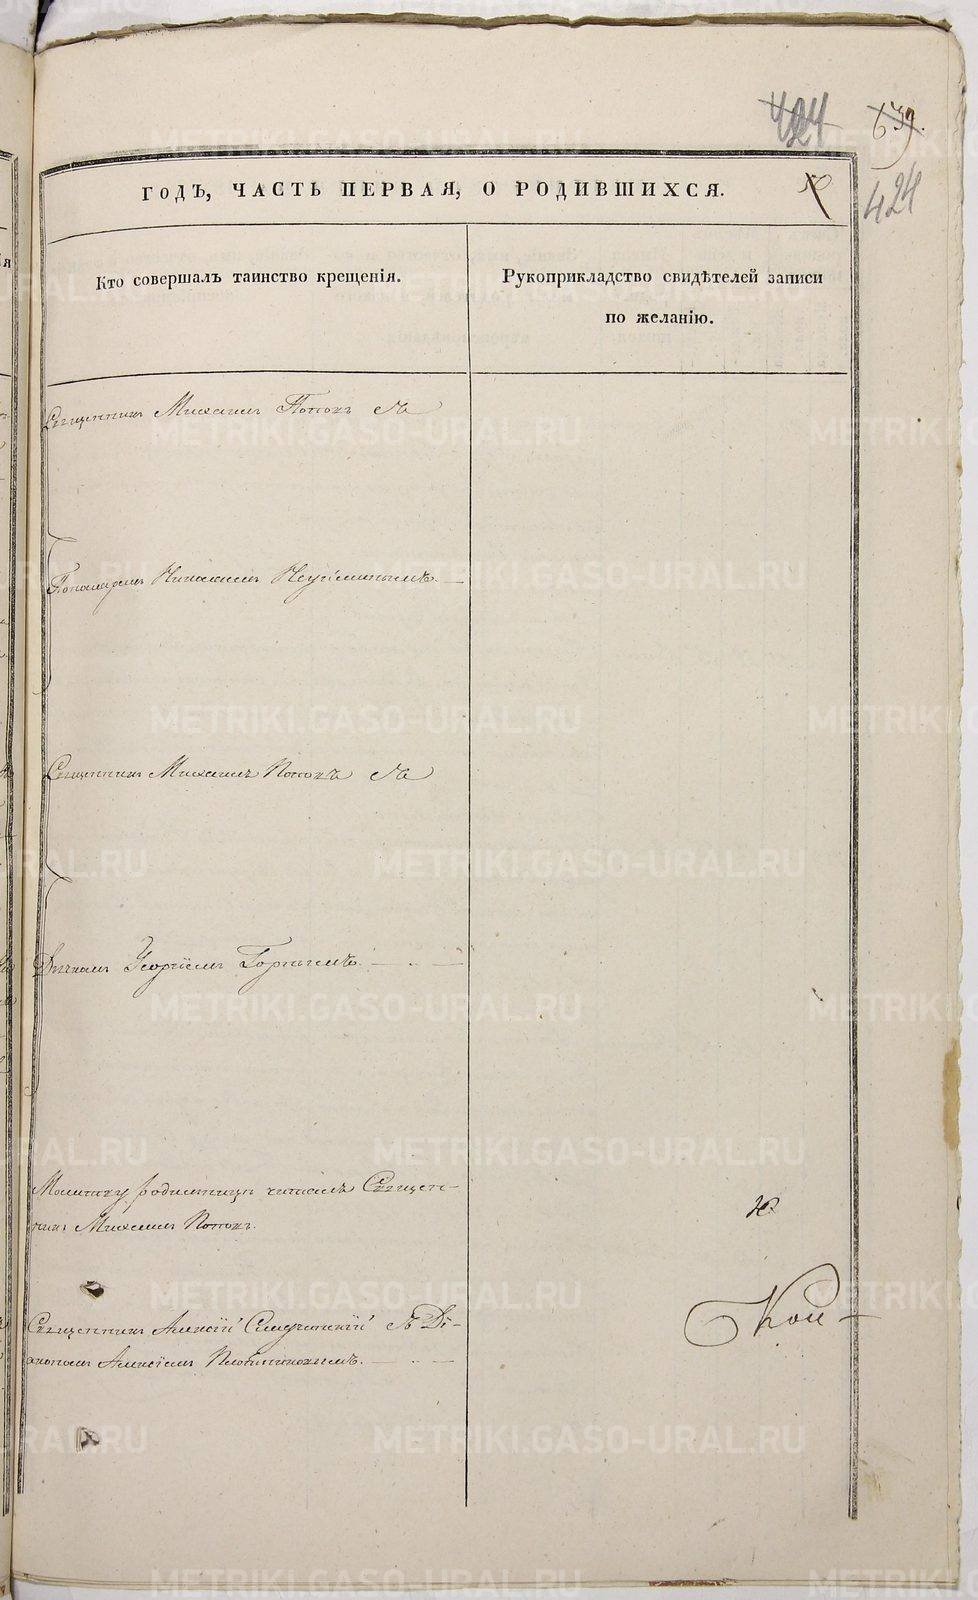 424 639.
424
ГОДЪ, ЧАСТЬ ПЕРВАЯ, О РОДИВШИХСЯ.
Кто совершалъ таинство крещенія.
Рукоприкладство свидѣтелей записи
по желанію.
Священникъ Михаилъ Поповъ съ
Пономаремъ Николаемъ Неуйминымъ.
Священникъ Михаилъ Поповъ съ
Дьячкомъ Георгіемъ Горныхъ.
Молитву родительницѣ читалъ Священ-
никъ Михаилъ Поповъ.
Священникъ Алексій съ Ді-
акономъ Алексіемъ Плотниковымъ.
METRIKI.GASO-URAL.RU